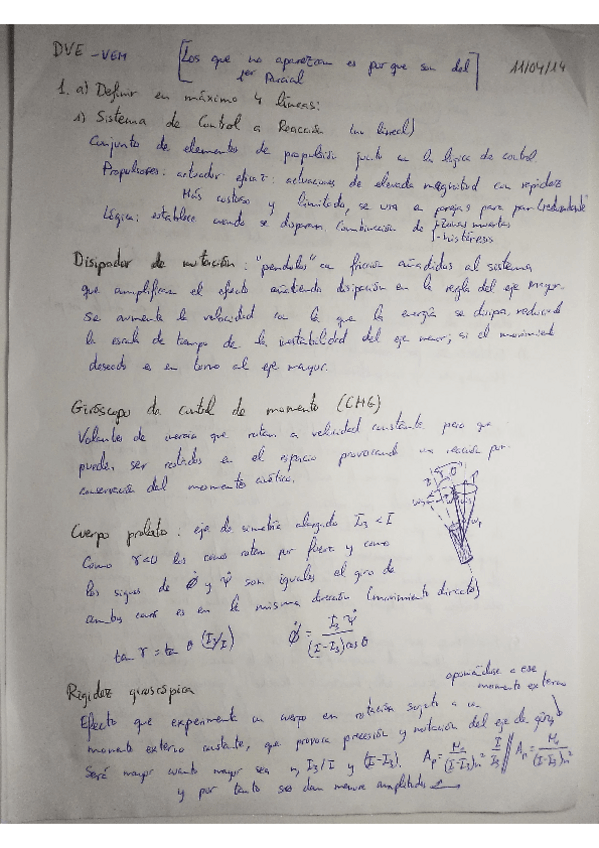 DVE - VEM [Los que no aparezcan es porque son del 1er Parcial] 11/04/14
1. a) Definir en máximo 4 líneas:
1) Sistema de Control a Reacción (no lineal)
Conjunto de elementos de propulsión junto con la lógica de control.
Propulsores: actuador eficaz: actuaciones de elevada magnitud con rapidez
Más costoso y limitado, se usa a parejas para par (redundante)
Lógica: establece cuando se disparan. Combinación de - zonas muertas
- histéresis
Disipador de nutación: "péndulos" con fricción añadidos al sistema
que amplifican el efecto añadiendo disipación en la regla del eje mayor.
Se aumenta la velocidad con la que la energía se disipa, reduciendo
la escala de tiempo de la inestabilidad del eje menor; si el movimiento
deseado es en torno al eje mayor.
Giróscopo de control de momento (CMG)
Volantes de inercia que rotan a velocidad constante pero que
pueden ser rotados en el espacio provocando una reacción por
conservación del momento cinético.
Cuerpo prolato: eje de simetría alargado I₃ < I
Como γ<θ los conos rotan por fuera y como
los signos de φ̇ y ψ̇ son iguales el giro de
ambos conos es en la misma dirección (movimiento directo)
tan γ = tan θ (I₃/I) φ̇ = I₃ ψ̇ / (I-I₃) cos θ
Rigidez giroscópica
oponiéndose a ese momento externo
Efecto que experimenta un cuerpo en rotación sujeto a un
momento externo constante, que provoca precesión y nutación del eje de giro,
Será mayor cuanto mayor sea n, I₃/I y (I-I₃). Ap = M₀/(I-I₃)n² I/I₃ // An = M₀/(I-I₃)n²
y por tanto se dan menores amplitudes